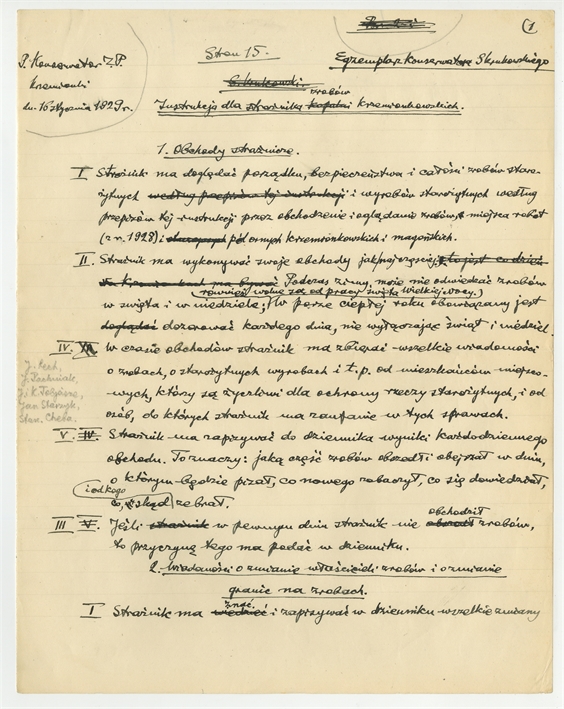 (1
Stron 15.
P. Konserwator Z.P
Krzemionki
dn. 16 stycznia 1929 r.
Egzemplarz Konserwatora Skrukowskiego
S. Krukowski.
zrobów
Instrukcja dla strażnika kopalni Krzemionkowskich.
1. Obchody strażnicze.
I Strażnik ma doglądać porządku, bezpieczeństwa i całości zrobów staro-
żytnych według przepisów tej instrukcji i wyrobów starożytnych według
przepisów tej instrukcji przez obchodzenie i oglądanie zrobów, miejsca robót
(z r. 1928) i pól ornych krzemionkowskich i magońskich.
II. Strażnik ma wykonywać swoje obchody jaknajczęściej, to jest co dzień
Podczas zimy, może nie odwiedzać zrobów
również wolne są od pracy święta wielkiejnocy.)
w święta i w niedziele; (W porze ciepłej roku obowiązany jest
doglądać dozorować każdego dnia, nie wyłączając świąt i niedziel.
IV. W czasie obchodów strażnik ma zbierać wszelkie wiadomości
o zrobach, o starożytnych wyrobach i t.p. od mieszkańców miejsco-
wych, którzy są życzliwi dla ochrony rzeczy starożytnych, i od
osób, do których strażnik ma zaufanie w tych sprawach.
J. Rech,
Jan Stárzyk,
Stan. Cheba.
V. IV. Strażnik ma zapisywać do dziennika wyniki każdodziennego
obchodu. To znaczy: jaką część zrobów obszedł i obejrzał w dniu,
o którym będzie pisał, co nowego zobaczył, co się dowiedział,
i od kogo
co, skąd zebrał.
obchodził
III V. Jeśli strażnik w pewnym dniu strażnik nie obszedł zrobów,
to przyczynę tego ma podać w dzienniku.
2. Wiadomości o zmianie właścicieli zrobów i o zmianie
granic na zrobach.
znać
I Strażnik ma wiedzieć i zapisywać w dzienniku wszelkie zmiany